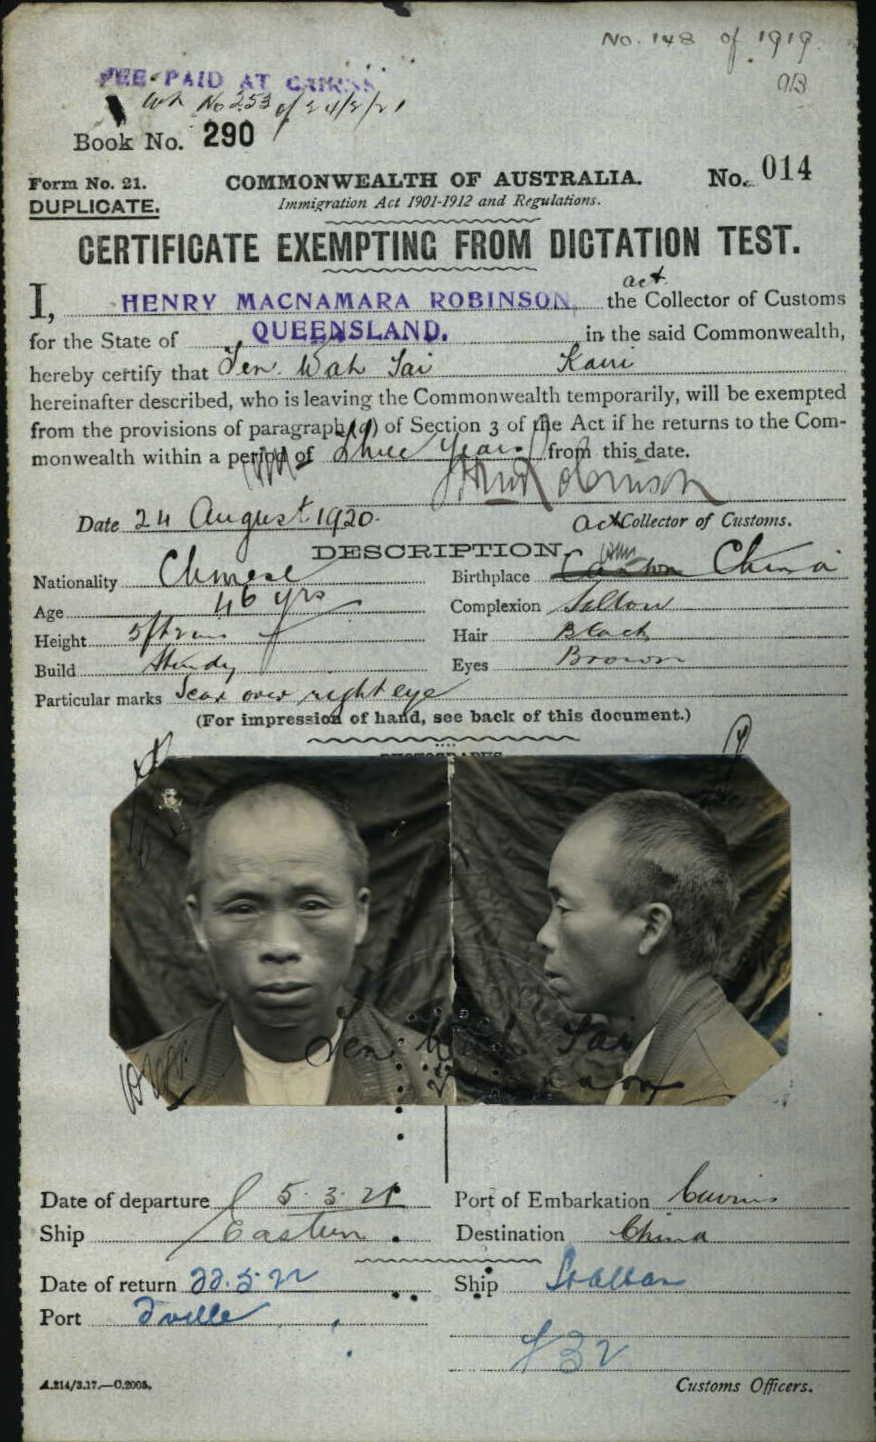 No. 148 of 1919.
FEE PAID AT CAIRNS
No 253 of 24/2/21
Book No. 290
Form No. 21. COMMONWEALTH OF AUSTRALIA. No. 014
DUPLICATE. Immigration Act 1901-1912 and Regulations.
CERTIFICATE EXEMPTING FROM DICTATION TEST.
act.
I, HENRY MACNAMARA ROBINSON, the Collector of Customs
for the State of QUEENSLAND. in the said Commonwealth,
hereby certify that Sen Wah Sai Kairi
hereinafter described, who is leaving the Commonwealth temporarily, will be exempted
from the provisions of paragraph (a) of Section 3 of the Act if he returns to the Com-
monwealth within a period of three years from this date.
HMRobinson
Date 24 August 1920. Act Collector of Customs.
DESCRIPTION.
Nationality Chinese Birthplace Canton China
Age 46 yrs Complexion Sallow
Height 5ft 2ins Hair Black
Build Sturdy Eyes Brown
Particular marks Scar over right eye
(For impression of hand, see back of this document.)
PHOTOGRAPHS
Sen Wah Sai
Date of departure 5.3.21 Port of Embarkation Cairns
Ship Eastern. Destination China
Date of return 22.5.22 Ship St Albans
Port Tville
A.214/3.17.—C.2005. Customs Officers.